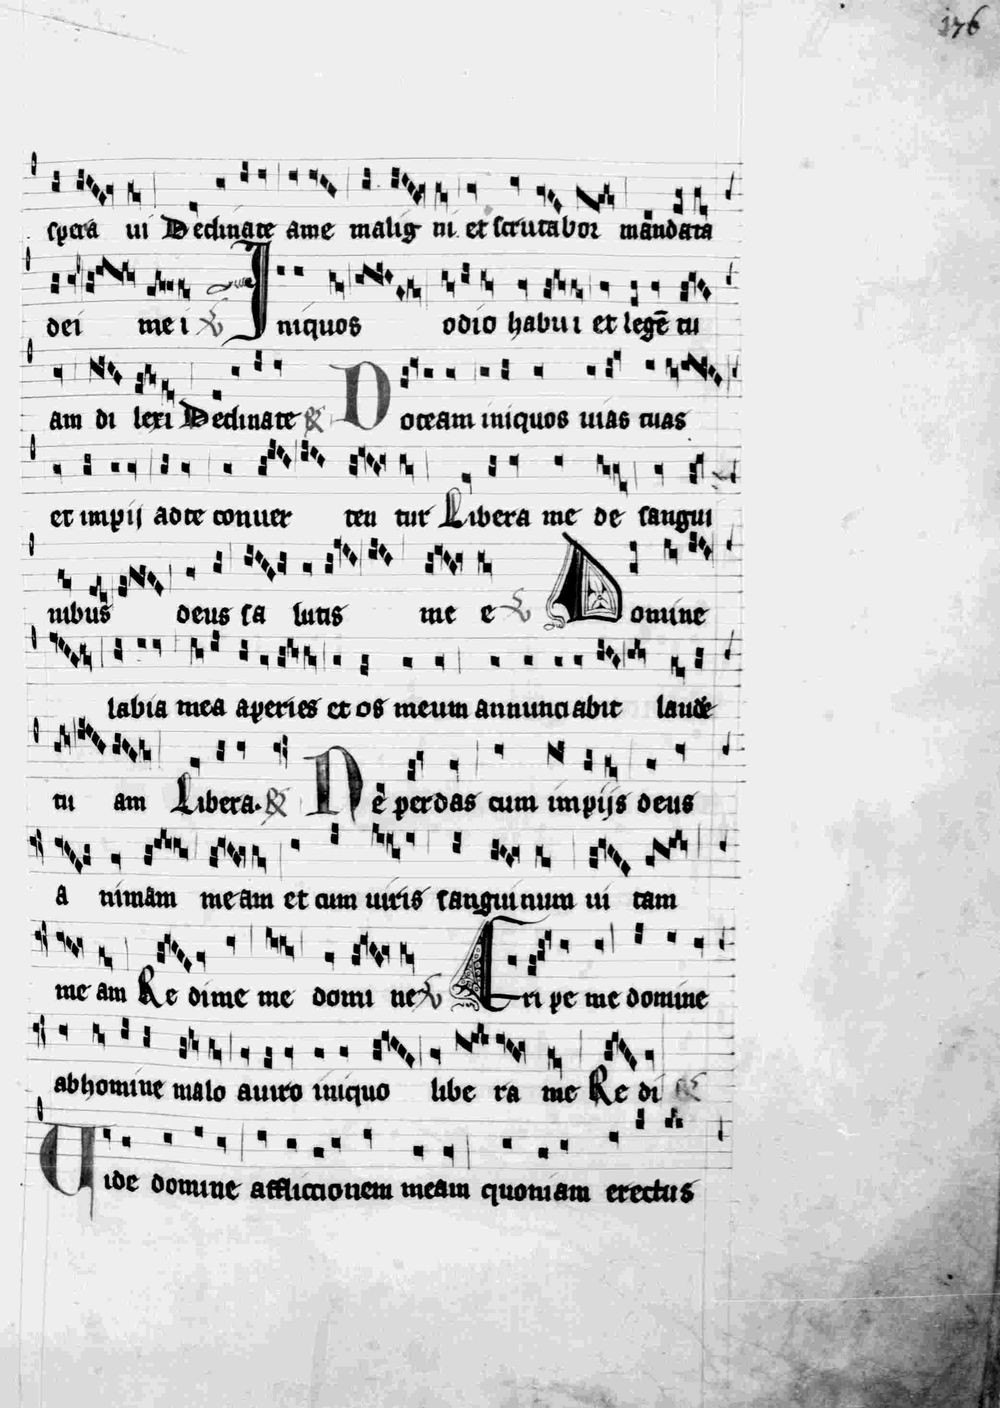 176
spera ui Declinate ame malig ni et scrutabor mandata
dei me i ℣ Iniquos odio habui et legē tu
am di lexi Declinate ℟ Doceam iniquos uias tuas
et impij adte conuer ten tur Libera me de sangui
nibus deus sa lutis me e ℣ Domine
labia mea aperies et os meum annunciabit laudē
tu am Libera. ℟ Ne perdas cum impijs deus
a nimam meam et cum uiris sanguinum ui tam
me am Re dime me domi ne ℣ Eri pe me domine
abhomine malo auiro iniquo libe ra me Re di ℟
Uide domine afflictionem meam quoniam erectus